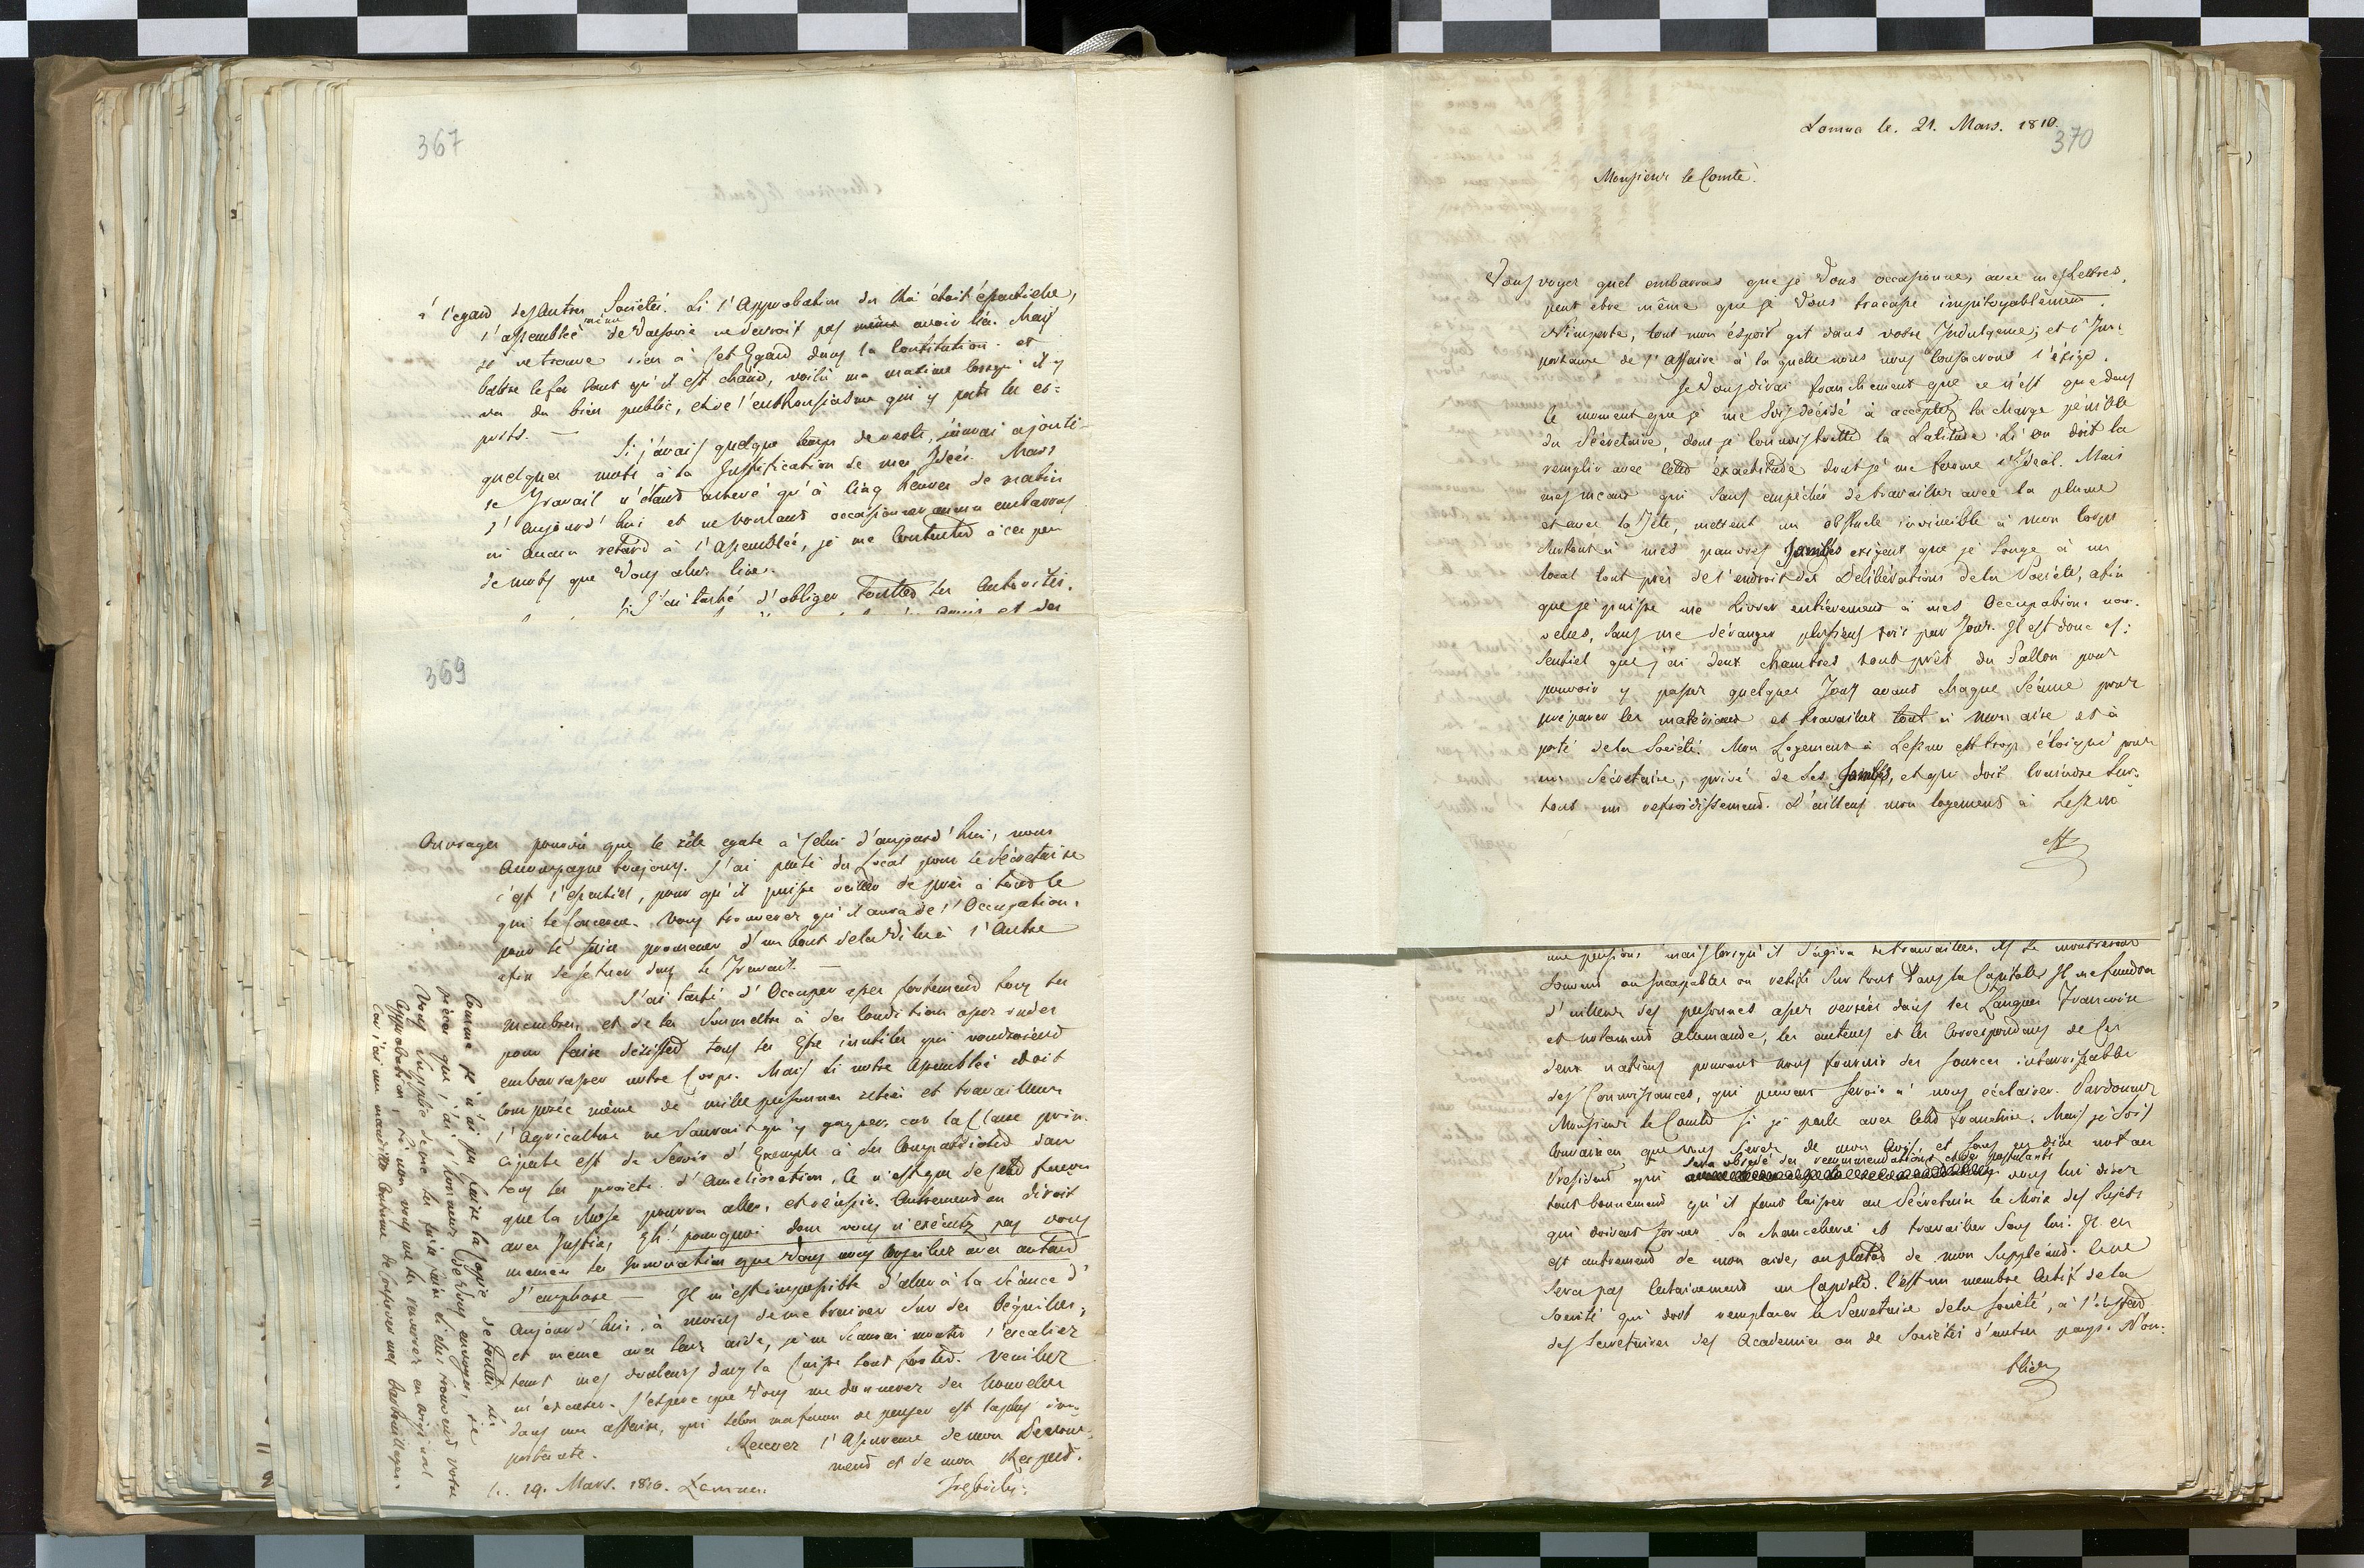 367
à l'egard des Autres Societés. Si l'Approbation du Roi étoit éssentielle,
l'assembleé même de Varsovie ne devroit pas même avoir lieu. Mais
se trouve rien à Cet Egard dans la Constitution. et
battre le fer tant qu'il est chaud, voilà ma maxime lorsqu'il y
va du bien public, et de l'enthousiasme qui y porte les es-
prits. —
Si j'avais quelque temps de reste, j'aurai ajouté
quelques mots à la Justification de mes Idées. Mais
le Travail n'étant achevé qu'à Cinq heures de matin
d'aujourd'hui et ne voulant occasionner aucun embarras
ni aucun retard à l'Assemblée, je me Contented à ces peu
de mots que Vous allez lire.
J'ai taché d'obliger touttes les Autorités.
369
Ouvrages pourvû que le zèle egale à Celui d'aujourd'hui, nous
Accompagne toujours. J'ai parlé du Local pour le Sécretaire
c'est l'essentiel, pour qu'il puisse veiller de près à tout le
qui le Concerne. Vous trouverez qu'il aura de l'Occupation,
pour le faire promener d'un bout de la Ville à l'Autre
afin de se tuer dans le Travail. —
J'ai taché d'Occuper assez fortement tous les
Membres, et de les Soumettre à des Conditions assez rudes
pour faire désisted tous les Etre inutiles qui voudroient
embarrasser notre Corps. Mais si notre Assemblée doit
Composée même de mille personnes zelées et travailleurs
l'Agriculture ne Sauroit qu'y gagner, car la Clause prin-
cipale est de Servir d'Exemple à des Compatriotes dans
tous les projets d'Amelioration, Ce n'est que de Cette façon
que la chose pourra aller, et réussir. Autrement on diroit
avec Justice, Eh! pourquoi donc vous n'exécutez pas vous
memes les Innovations que Vous nous conseillez avec autant
d'emphase — Il m'est impossible d'aller à la Séance d'
Aujourd'hui, à moins de me trainer Sur des béquilles,
et meme avec leur aide, je ne Scaurai monter l'escalier
tant mes douleurs dans la Cuisse sont fortes. Veuillez
m'excuser. J'espere que Vous me donnerez des Nouvelles
dans une affaire, qui selon ma facon de penser est la plus im-
portante.
Recevez l'Assurance de mon Devoue-
ment et de mon Respect.
19. Mars. 1810. Lomna.
Comme je n'ai pu faire la Copie de touttes les
pièces que j'ai l'honneur de Vous envoyer, je
Vous Supplie de me les faire tenir si elles trouvent votre
Approbation, si non vous me les renverrez en original
Car j'ai une maudite Coutume de conserver mes barbouillages.
Lomna le. 21. Mars. 1810.
370
Monsieur le Comte.
Vous voyez quel embarras que je Vous occasionne, avec mes Lettres,
peut etre même que je Vous tracasse impitoyablement.
N'importe, tout mon éspoir git dans votre Indulgence; et l'Im-
portance de l'Affaire à la quelle nous nous Consacrons l'éxige.
Je Vous dirai franchement que ce n'est que dans
le moment que je me Suis décidé à accepter la charge pénible
du Sécretaire, dont je Connois toutte la Latitude Si on doit la
remplir avec Cette éxactitude dont je me forme l'Ideal. Mais
mes meaux qui Sans empêcher de travailler avec la plume
et avec la Tête, mettent un obstacle invincible à mon Corps
Surtout à mes pauvres Jambes exigent que je Songe à un
local tout près de l'endroit des Deliberations de la Société, afin
que je puisse me Livrer entièrement à mes Occupations nou-
velles, Sans me déranger plusieurs fois par Jour. Il est donc es-
Sentiel que j'ai deux chambres, tout près du Sallon pour
pouvoir y passer quelques Jours avant chaque Séance pour
préparer les matériaux et travailler tout à mon aise et à
porté de la Société. Mon Logement à Leszno est trop éloigné pour
un Sécretaire, privé de Ses Jambes, et qui doit Craindre Sur-
tout un refroidissement. D'ailleurs mon logement à Leszno
une pension, mais lorsqu'il s'agira de travailler, ils Se montreront
Souvent ou Incapables ou retifs Sur tout dans la Capitale. Il me faudra
d'ailleurs des personnes assez versées dans les Langues Francoise
et notament Allemande, les auteurs et les Correspondans de Ces
deux nations pouvant nous fournir des Sources intarrissables
des Connoissances, qui peuvent Servir à nous éclairer. Pardonnez
Monsieur le Comte si je parle avec Cette franchise. Mais je Suis
Convaincu que vous Serez de mon Avis, et Sans en dire mot au
Sera obsédé des recommendations et des postulants
President qui vous lui direz
tout bonnement qu'il faut laisser au Sécretaire le Choix des Sujets
qui doivent former Sa Chancelerie et travailler Sous lui. Il en
est autrement de mon aide, ou plutot de mon Suppléant. Ce ne
Sera pas Certainement un Copiste. C'est un membre Actif de la
Société qui doit remplacer le Secretaire de la Société, à l'instard
des Secretaires des Academies ou de Sociétés d'autres pays. N'ou-
bliez